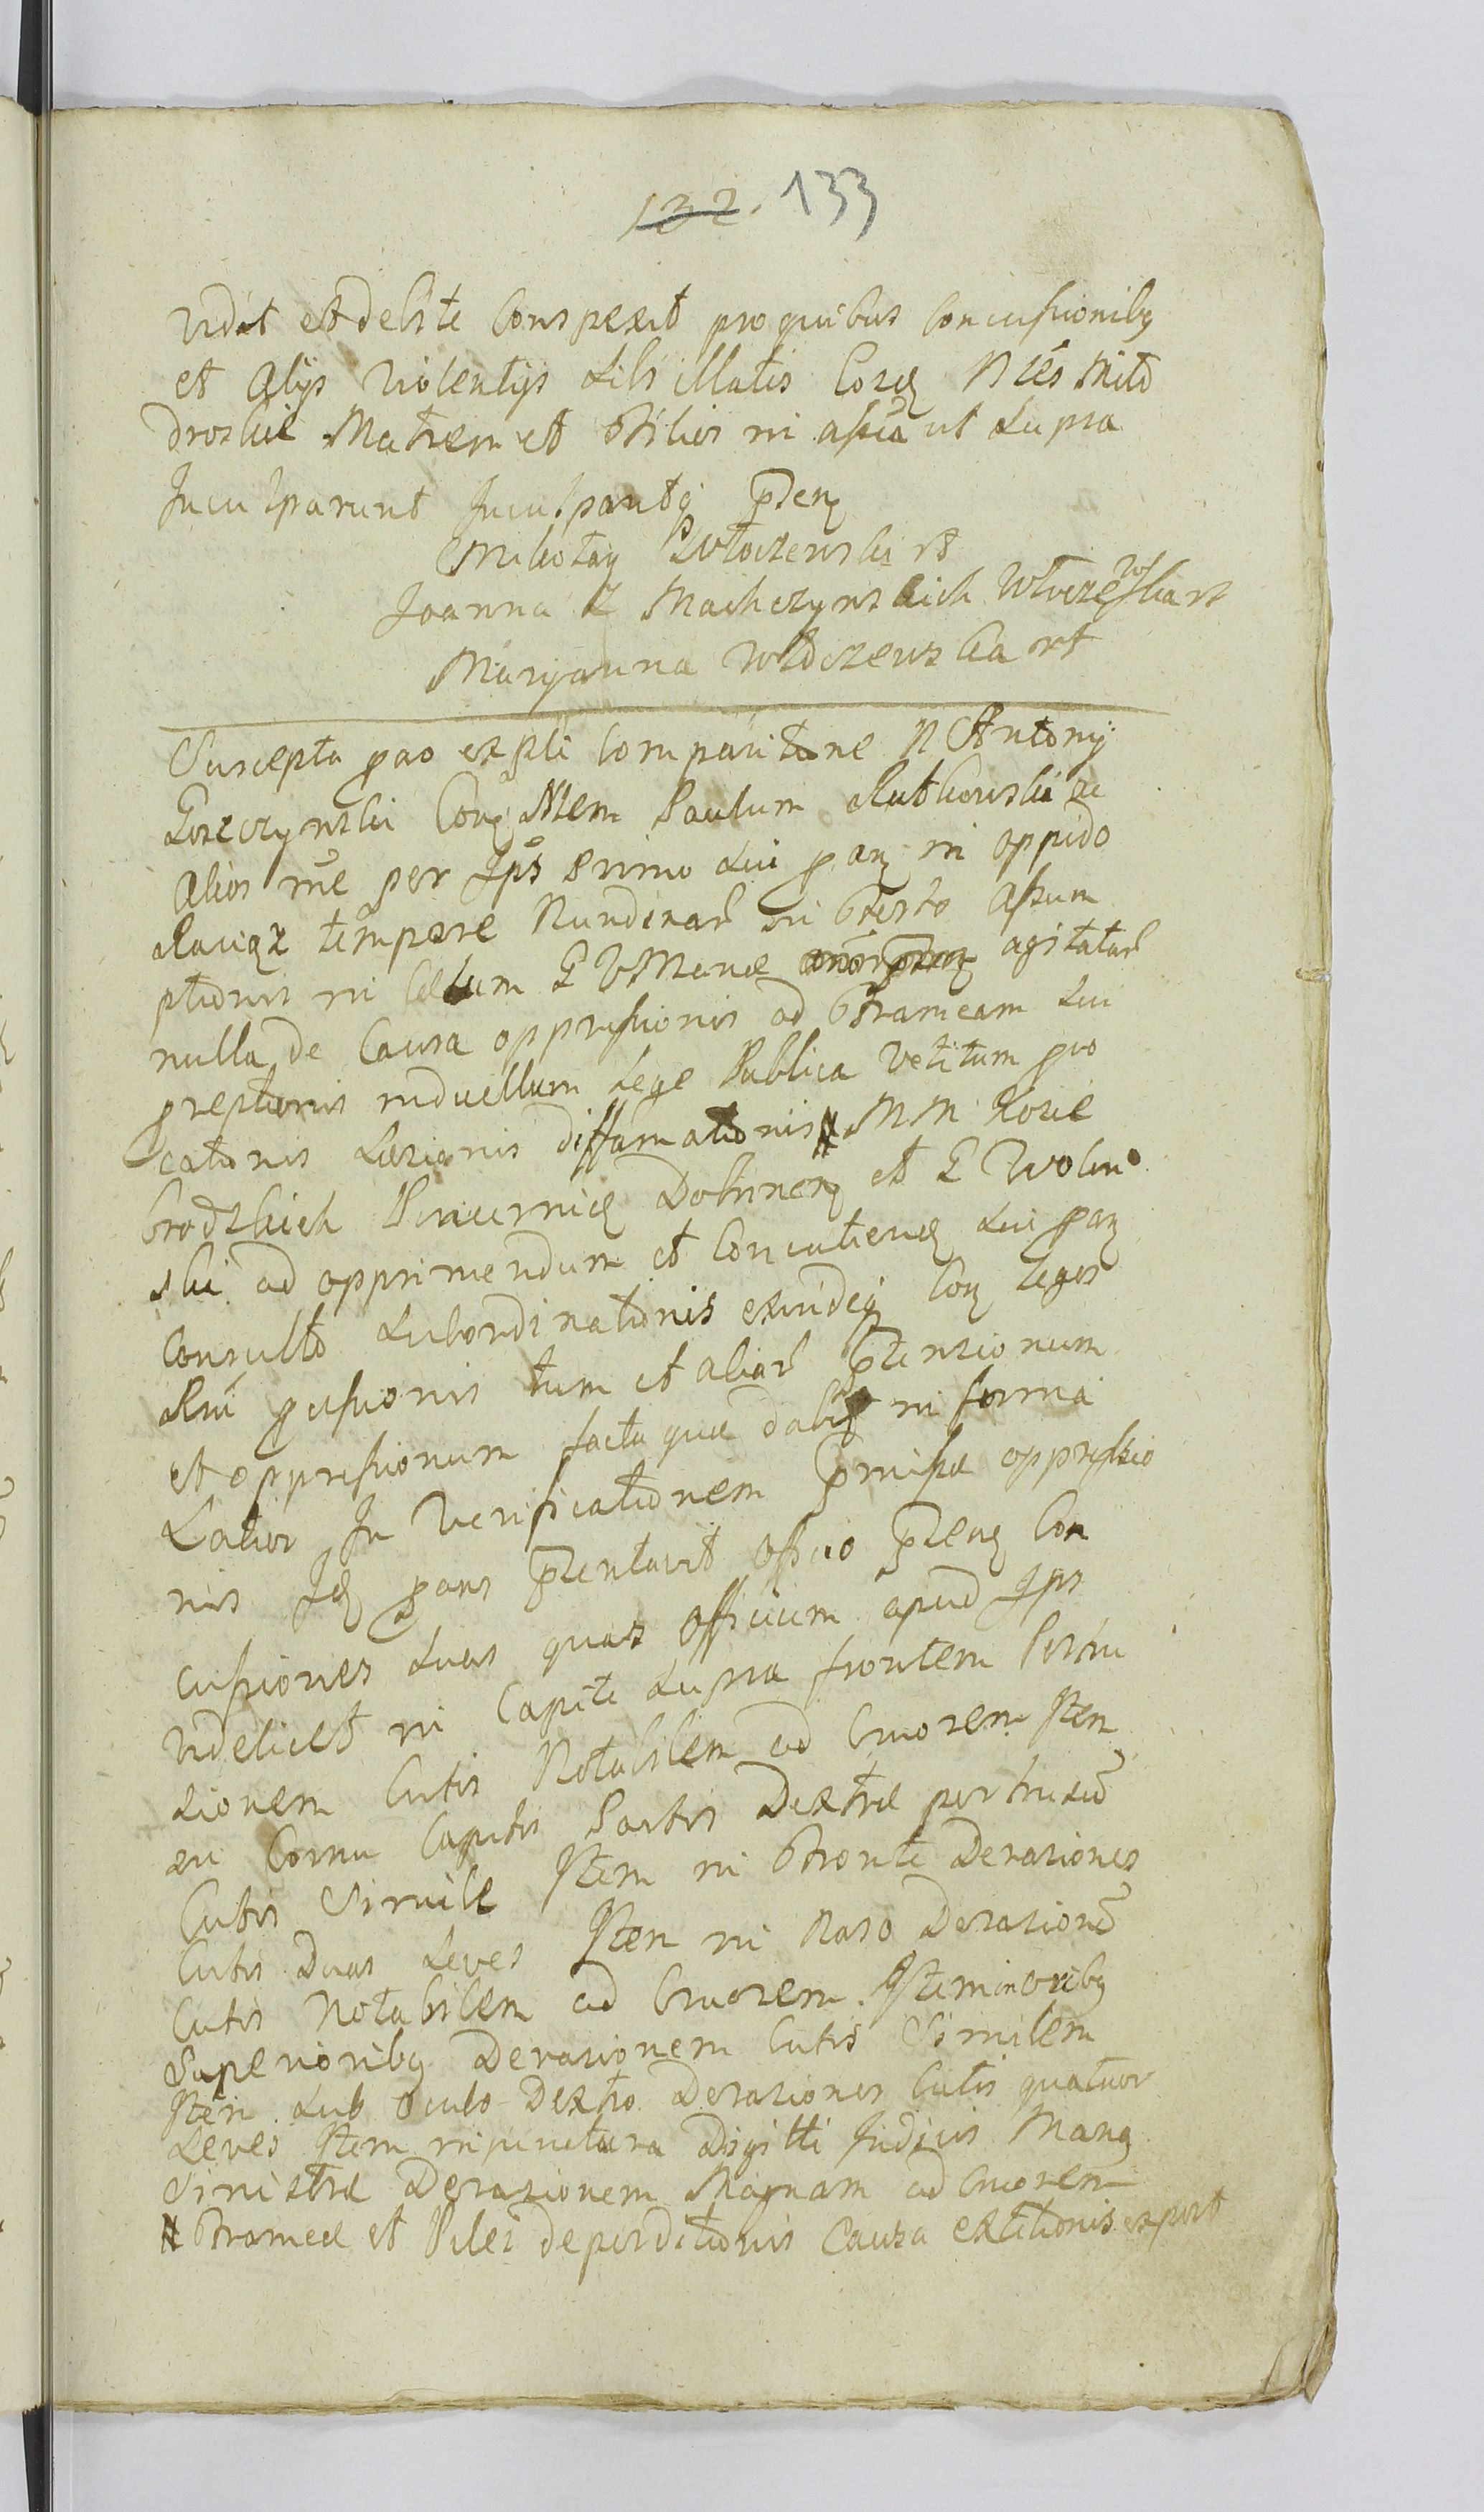 132. 133
vidit et debite Conspexit pro quibus Concussionibg
et Alijs Violentijs Sibi illatis Coræ Nres Mło
droskie Matrem et Filios in assa ut Supra
Inculparunt Inculpantq pñtem
Mikołay Włoczewski rt
Joanna Z Machczynskich Włoczewska rt
Maryanna Włoczewska rt
Suscepta pao exple Comparitione N Antonij
Goszczynski Cong Nlem Paulum Rutkowski ac
Alios rõe per Ips primo Sui in oppido
Raciąż tempore Nundinar in Festo Assum
ptionis in Cœlum B V Mariæ agitatar
nulla de Causa oppressionis ad Frameam Sui
preptionis in duellum Lege Publica Vetitum pvo
cationis Læsionis diffamationis # MM Kozie
brodzkich Pincernic Dobrinen et G Wolin
ski ad opprimendum et Concutiend Sui
Consulto Subordinationis exindeq Con leges
Rni pcussionis tum et aliar ptensionum
et oppressionum facta qua dabit in forma
Latior In Verificationem pmissæ oppressio
nis Id pans pzentavit Officio pzen Con
cussiones Suas quas Officium apud Ips
videlicet in Capite Supra frontem Pertu
sionem Cutis Notabilem ad Cruorem Item
in Cornu Capitis Partis Dextræ pertusio
Cutis Simile Item in Fronte Derasiones
Cutis Duas Leves Item in Naso Derasione
Cutis Notabilem ad Cruorem. Item in oribg
Superioribg Derasionem Cutis Similem
Item Sub Oculo Dextro Derasiones Cutis quatuor
Leves Item in junctura Digitti Indicis Mang
Sinistræ Derasionem Magnam ad Cruorem
# Frameæ et Pilei deperditionis Causa